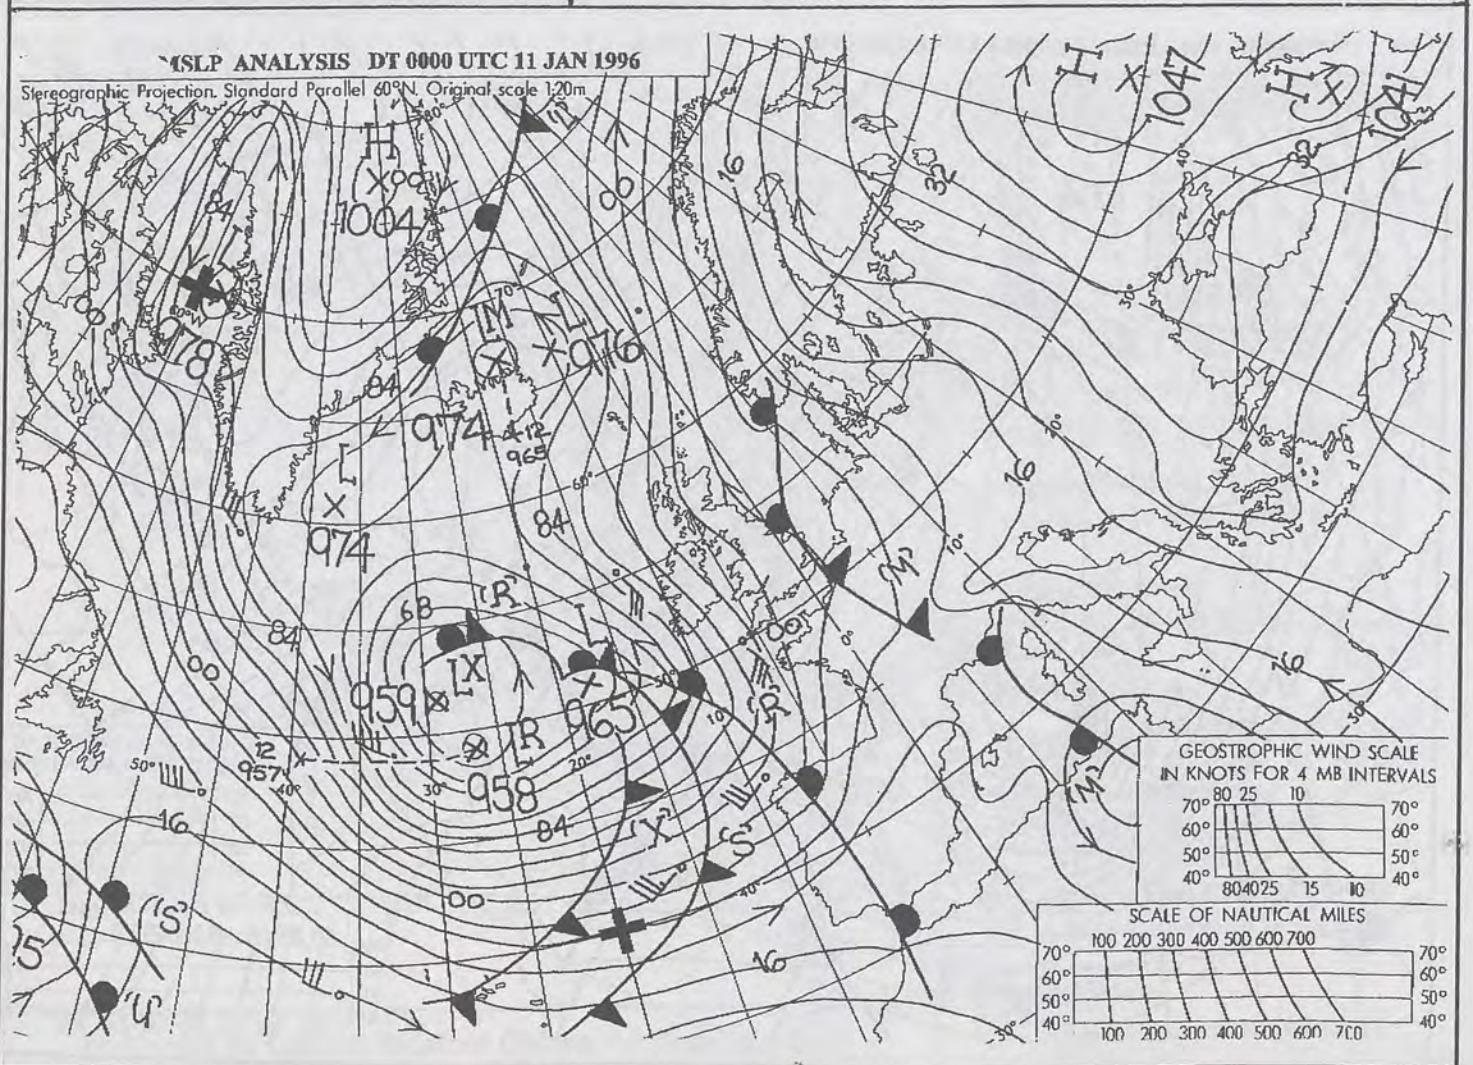 MSLP ANALYSIS DT 0000 UTC 11 JAN 1996
Stereographic Projection. Standard Parallel 60°N. Original scale 1:20m
80°
H
1047
H
1041
H
1004
84
00
16
32
40°
32
00
60°W
978
M
L
976
84
974
12
965
30°
20°
L
974
60°
84
16
10°
'M'
68
'R'
84
00
L
00
0°
959
LX
50°
965
10°
'R'
16
50°
LR
958
12
957
50°
40°
30°
20°
84
'X'
'S'
'M'
16
00
40°
16
'S'
'U'
30°
GEOSTROPHIC WIND SCALE
IN KNOTS FOR 4 MB INTERVALS
80 25 10
70° 70°
60° 60°
50° 50°
40° 40°
80 40 25 15 10
SCALE OF NAUTICAL MILES
100 200 300 400 500 600 700
70° 70°
60° 60°
50° 50°
40° 40°
100 200 300 400 500 600 700